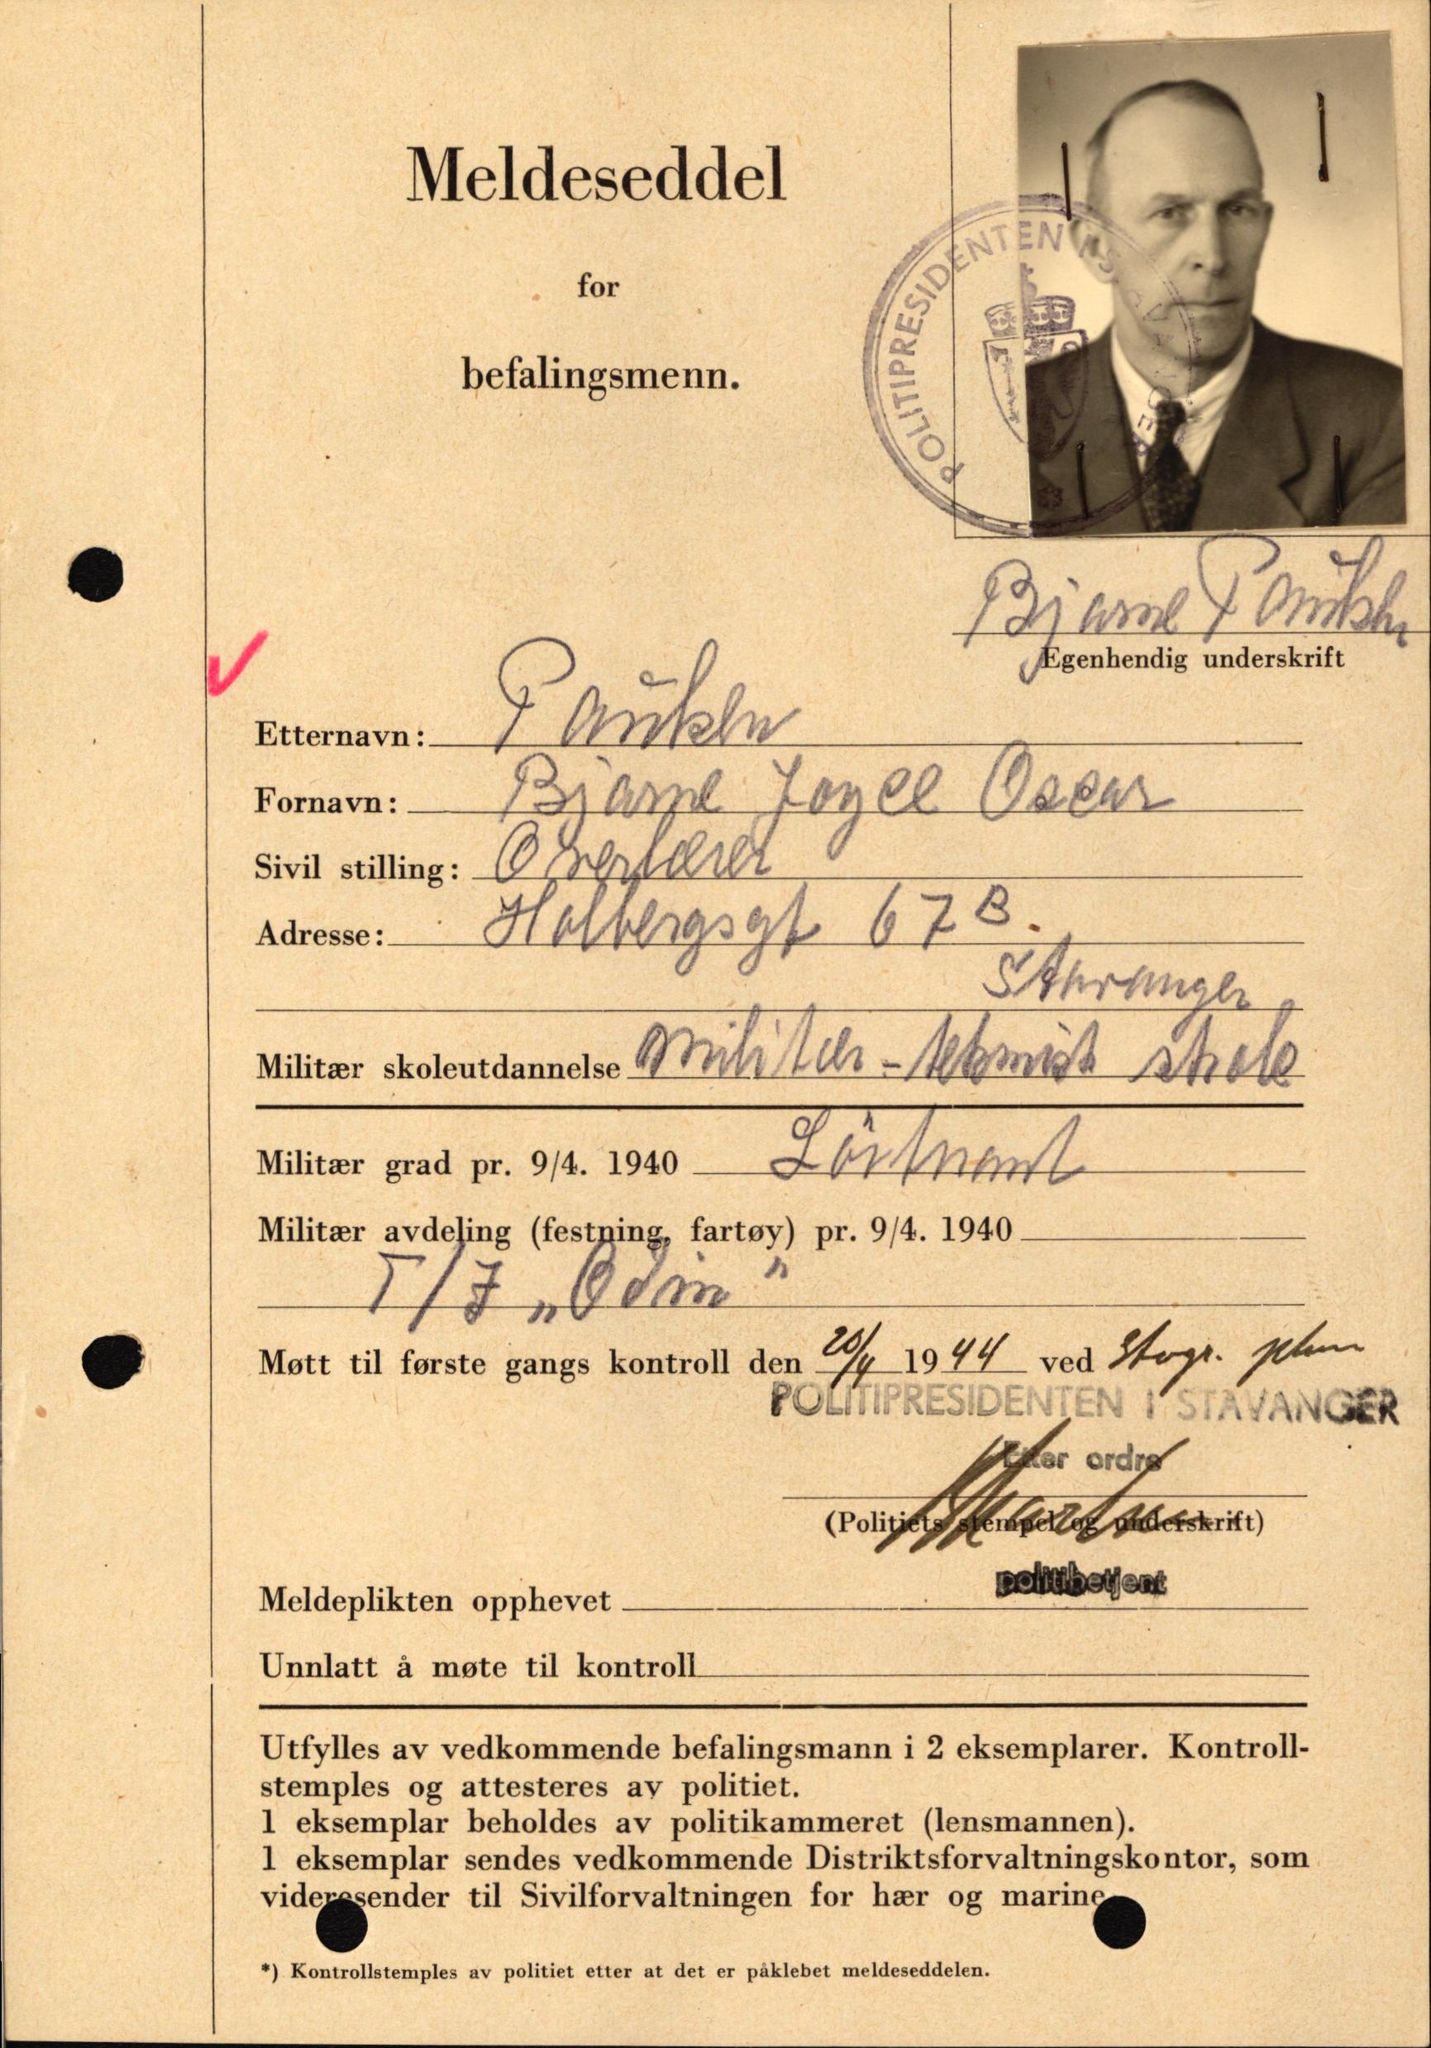 Meldeseddel
for
befalingsmenn.
POLITIPRESIDENTEN I STAVANGER
Bjarne
Egenhendig underskrift
Etternavn:
Fornavn: Bjarne Joyce Oscar
Sivil stilling: Overlærer
Adresse: Holbergsgt 67 B.
Stavanger
Militær skoleutdannelse Militær-teknisk skole
Militær grad pr. 9/4. 1940 Löitnant
Militær avdeling (festning, fartøy) pr. 9/4. 1940
T/J „Odin"
Møtt til første gangs kontroll den 20/4 1944 ved Stvgr. pkm
POLITIPRESIDENTEN I STAVANGER
Etter ordre
(Politiets stempel og underskrift)
politibetjent
Meldeplikten opphevet
Unnlatt å møte til kontroll
Utfylles av vedkommende befalingsmann i 2 eksemplarer. Kontroll-
stemples og attesteres av politiet.
1 eksemplar beholdes av politikammeret (lensmannen).
1 eksemplar sendes vedkommende Distriktsforvaltningskontor, som
videresender til Sivilforvaltningen for hær og marine.
*) Kontrollstemples av politiet etter at det er påklebet meldeseddelen.